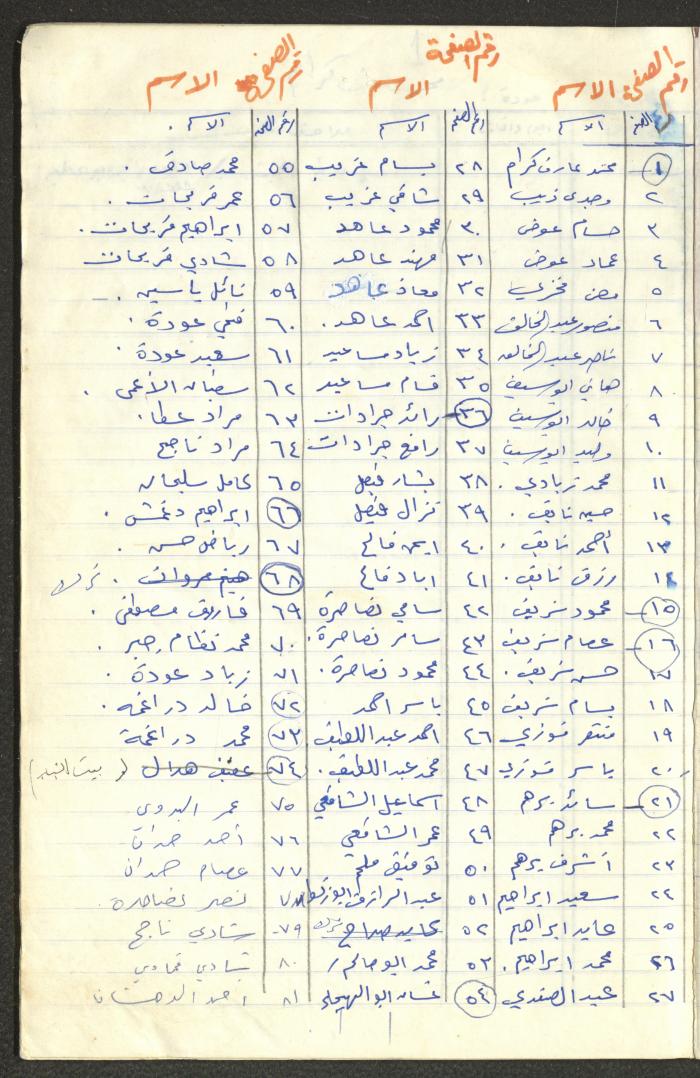 رقم الصفحة الاسم رقم الصفحة الاسم رقم الصفحة الاسم
الاسم الاسم رقم الصفحة الاسم
١ محمد عارف كرام ٢٨ بسام غريب ٥٥ محمد صادق
٢ وجدي ذيب ٢٩ شافي غريب ٥٦ عمر فريحات
٣ حسام عوض ٣٠ محمود عاهد ٥٧ ابراهيم فريحات
٤ عماد عوض ٣١ مهند عاهد ٥٨ شادي فريحات
٥ فخري ٣٢ معاذ عاهد ٥٩ نائل ياسين
٦ منصور عبد الخالق ٣٣ احمد عاهد ٦٠ فتحي عودة
٧ ناصر عبد الخالق ٣٤ زياد مساعيد ٦١ سعيد عودة
٨ هاني ابوسيف ٣٥ قسام مساعيد ٦٢ سفيان الأعمى
٩ خالد ابوسيف ٣٦ رائد جرادات ٦٣ مراد عطا
١٠ وليد ابوسيف ٣٧ رافع جرادات ٦٤ مراد ناجح
١١ محمد زيادي ٣٨ بشار فيصل ٦٥ كامل سليمان
١٢ حسين نايف ٣٩ نزال فيصل ٦٦ ابراهيم دغمش
١٣ أحمد نايف ٤٠ ايمن فالح ٦٧ رياض حسن
١٤ رزق نايف ٤١ اياد فالح ٦٨ هيثم مروان
١٥ محمود شريف ٤٢ سامي نصاصرة ٦٩ فاروق مصطفى
١٦ عصام شريف ٤٣ سامر نصاصرة ٧٠ محمد نظام جبر
١٧ حسن شريف ٤٤ محمود نصاصرة ٧١ زياد عودة
١٨ بسام شريف ٤٥ ياسر احمد ٧٢ خالد دراغمة
١٩ منتصر فوزي ٤٦ احمد عبد اللطيف ٧٣ محمد دراغمة
٢٠ ياسر فوزي ٤٧ محمد عبد اللطيف ٧٤ عفيف هدال
٢١ سائد برهم ٤٨ اسماعيل الشافعي ٧٥ عمر البدوي
٢٢ محمد برهم ٤٩ عمر الشافعي ٧٦ أحمد حمدان
٢٣ أشرف برهم ٥٠ توفيق ملحم ٧٧ عصام حمدان
٢٤ سعيد ابراهيم ٥١ عبد الرازق ٧٨ نصر نصاصرة
٢٥ عايد ابراهيم ٥٢ ٧٩ شادي ناجح
٢٦ محمد ابراهيم ٥٣ محمد ابو صالح ٨٠ شادي
٢٧ عبد الصفدي ٥٤ غسان ابو الهيجا ٨١ احمد